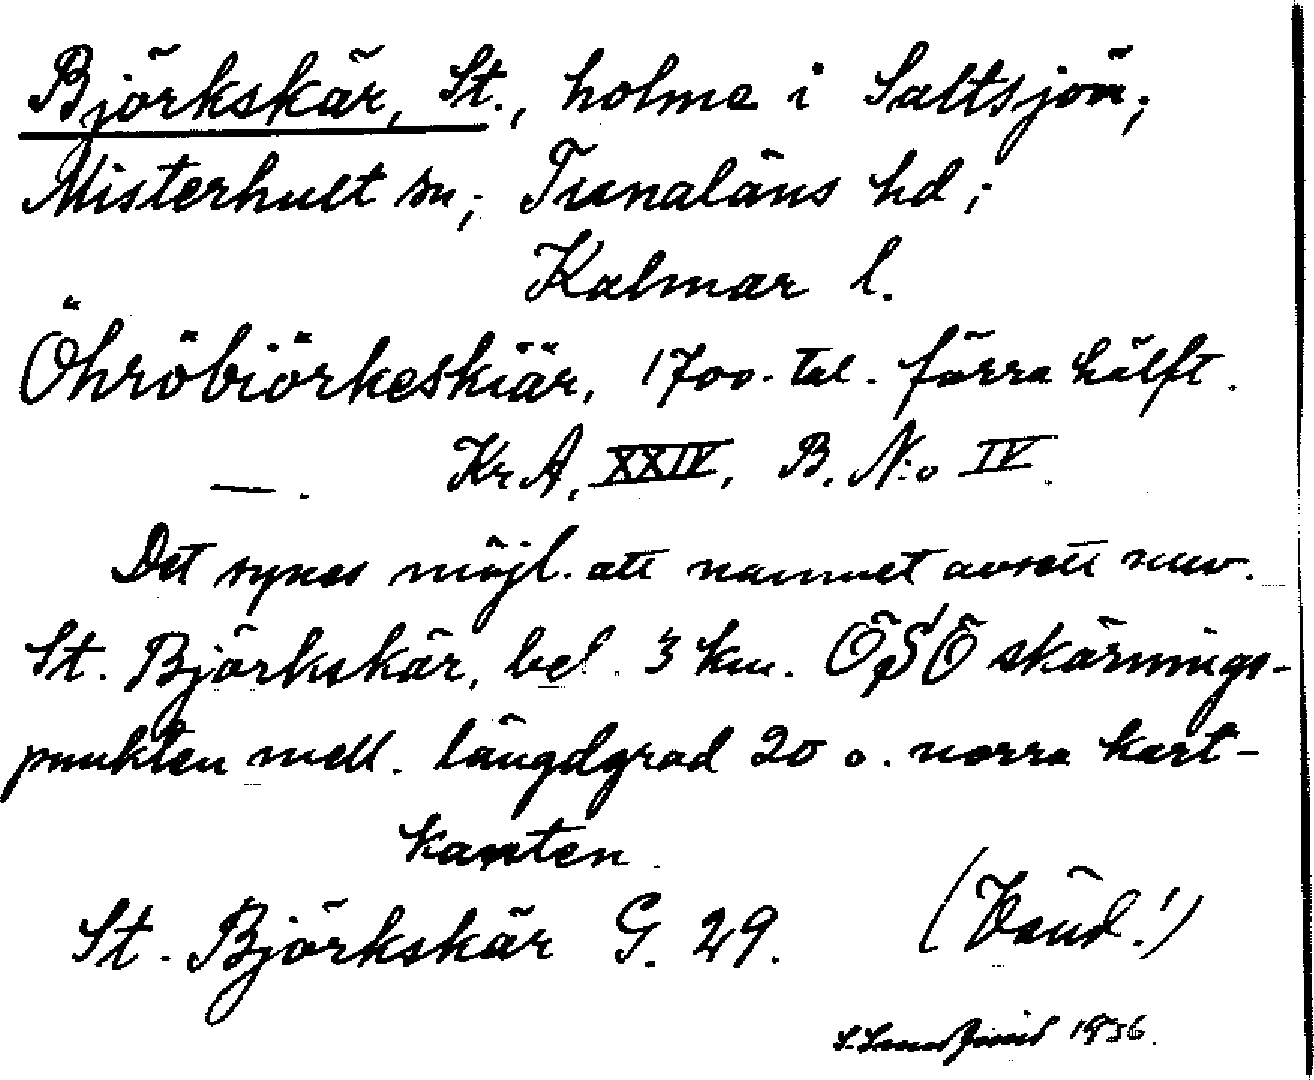 Björkskär, St., holme i Saltsjön;
Misterhult sn; Tunaläns hd;
Kalmar l.
Öhröbiörkeskiär, 1700-tal. förra hälft.
—. KrA, XXIV, B. N:o IV.
Det synes möjl. att namnet avsett nuv.
St. Björkskär, bel. 3 km. ÖSÖ skärnings-
punkten mell. längdgrad 20 o. norra kart-
kanten.
St. Björkskär G. 29. (Vänd!)
1936.